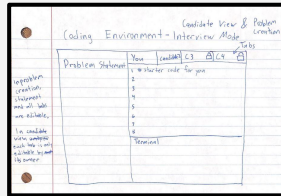 Candidate View & Problem
creation
Coding Environment - Interview Mode
Tabs
Problem Statement
You
candidate
C3
C4
1 # starter code for you
2
3
4
5
6
7
8
Terminal
In problem
creation,
statement
and all tabs
are editable.
In candidate
view
each tab is only
editable by
its owner.